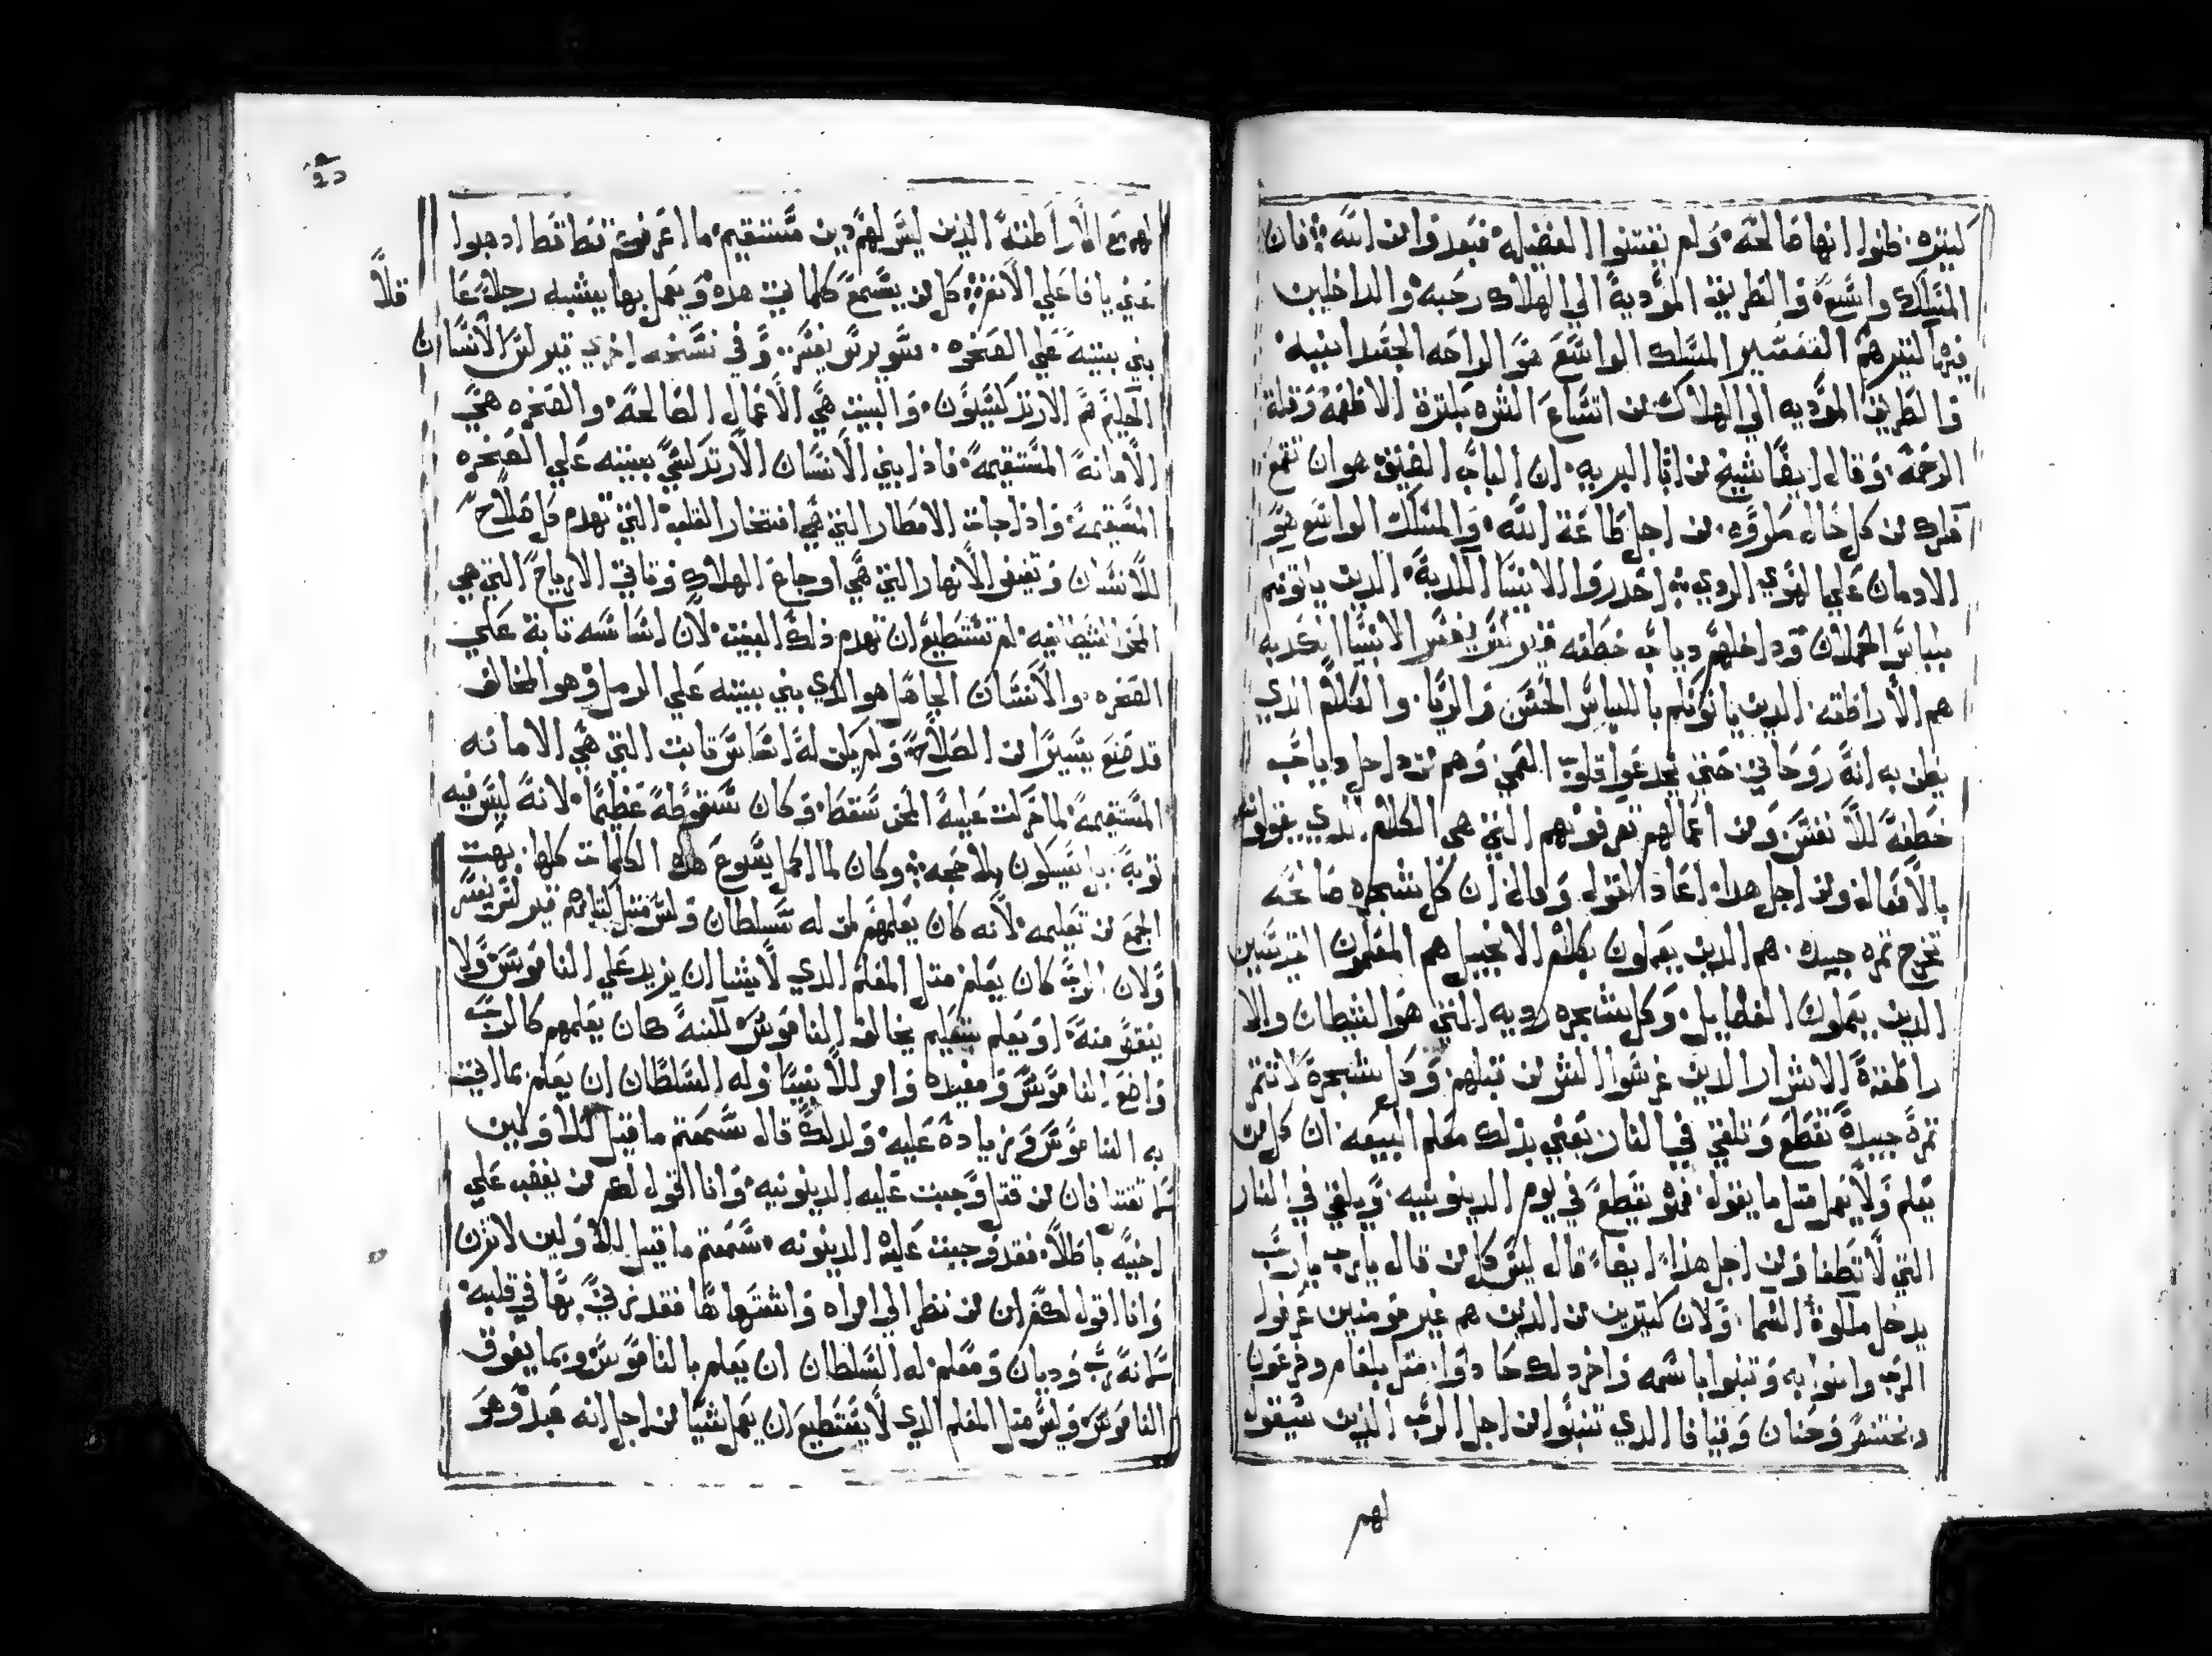 كتيره ظنوا انها صالحه ولم يقتنوا الفضيله فبعدوا من الله فان
المسلك واسع والطريق المؤدية الي الهلاك رحبه والداخلين
فيها كتير هم القصصير المسلك الواسع هو الواحه الجسدانيه
والطريق المؤديه الي الهلاك من اتساع الشره بكترة الاطعمه وقلة
الرحمه وقال ايضا شيخ من ابا البريه ان الباب الضيق هو ان تقمع
من كل حال من اجل طاعة الله والمسلك الواسع هو
الادمان علي الهوي الردي احدروا الانبيا الكدبة الدين ياتونكم
بلباس الحملان وداخلهم دياب خطفه فسر الانبيا الكدبه
هم الاراطقه الدين ياتوكم باللباس الخشن والريا والكلام الدي
يظن به انه روحاني حتي يخدعوا قلوب وهم من داخل دياب
خطفه للانفس ومن اعمالهم تعرفونهم التي هي الكلام الدي يقولونه
بالافعال ومن اجل هدا اعاد القول وقال ان كل شجره صالحه
تخرج تمره جيده هم الدين يعملون بكلام الانجيل هم المعلمون القديسين
الدين يعملون الفضايل وكل شجره رديه التي هو الشيطان والا
راطقة الاشرار الدين غرسوا الشر من قبلهم وكل شجرة لا تتمر
تمرة جيدة تقطع وتلقي في النار يعني بدلك معلم البيعه ان كل من
يعلم ولا يعمل متل ما يقول فهو يقطع في يوم الدينونيه ويلقي في النار
التي لا تطفا ومن اجل هذا ايضا قال ليس كل من قال يارب يارب
يدخل ملكوة السما ولان كتيرين من الدين هم غير مومنين عرفوا
الرب وامنوا به وتنبوا باسمه واخر دلك حادوا متل بلعام وفرعون
وبختنصر وحنان وقيافا الدي تنبوا من اجل الرب الذين سيقول
لهم
لهم مع الاراطقة الذين ليس لهم دين مستقيم ما اعرفكم قط قط ادهبوا
عني يا فاعلي الاتم كل من يسمع كلماتي هده ويعمل بها يشبه رجلا عا
قلا
بني بيته علي الصخره سويرس يفسر وفي نسخه اخري قيرلس الانسان
الحليم هم الارتدكسيون والبيت هي الاعمال الصالحة والصخره هي
الامانة المستقيمة فاذا بني الانسان الارتدكسي بيته علي الصخره
المستقيمة واذا جات الامطار التي هي افتخار القلب التي تهدم كل صلاح
للانسان وتفيض الانهار التي هي اوجاع الهلاك وتاتي الارياح التي هي
المحن الشيطانيه لم تستطيع ان تهدم ذلك البيت لان اساسه تابة علي
الصخره والانسان الجاهل هو الدي بني بيته علي الرمل وهو المخالف
قد صنع يسيرا من الصلاح ولم يكن له اساس تابت التي هي الامانه
المستقيمة لما نزلت عليه المحن سقط وكان سقوطه عظيما لانه ليس فيه
توبة بل يسيلون بلا حجه وكان لما اكمل يسوع هده الكلمات كلها بهت
الجمع من تعليمه لانه كان يعلمهم كمن له سلطان وليس متل كتابهم قيرلس يفسر
ولان الرب كان يعلم متل المعلم الدي لا يشا ان يزيد علي الناموس ولا
ينقص منه او يعلم بتعليم يخالف الناموس لكنه كان يعلمهم كالرب
واضع الناموس ومفيده وامر للانبيا وله السلطان ان يعلم بما اتت
به الناموس وبزيادة عليه ولدلك قال سمعتم ما قيل للاولين
لا تقتل فان من قتل وجبت عليه الدينونيه وانا اقول لكم من يغضب علي
اخيه باطلا فقد وجبت عليه الدينونه سمعتم ما قيل للاولين لا تزن
وانا اقول لكم ان من نظر الي امراه واشتهاها فقد زني بها في قلبه
لانه رب وديان ومعلم له السلطان ان يعلم بالناموس وبما يفوق
الناموس وليس متل المعلم الدي لا يستطيع ان يعمل شيا من اجل انه عبد وهو